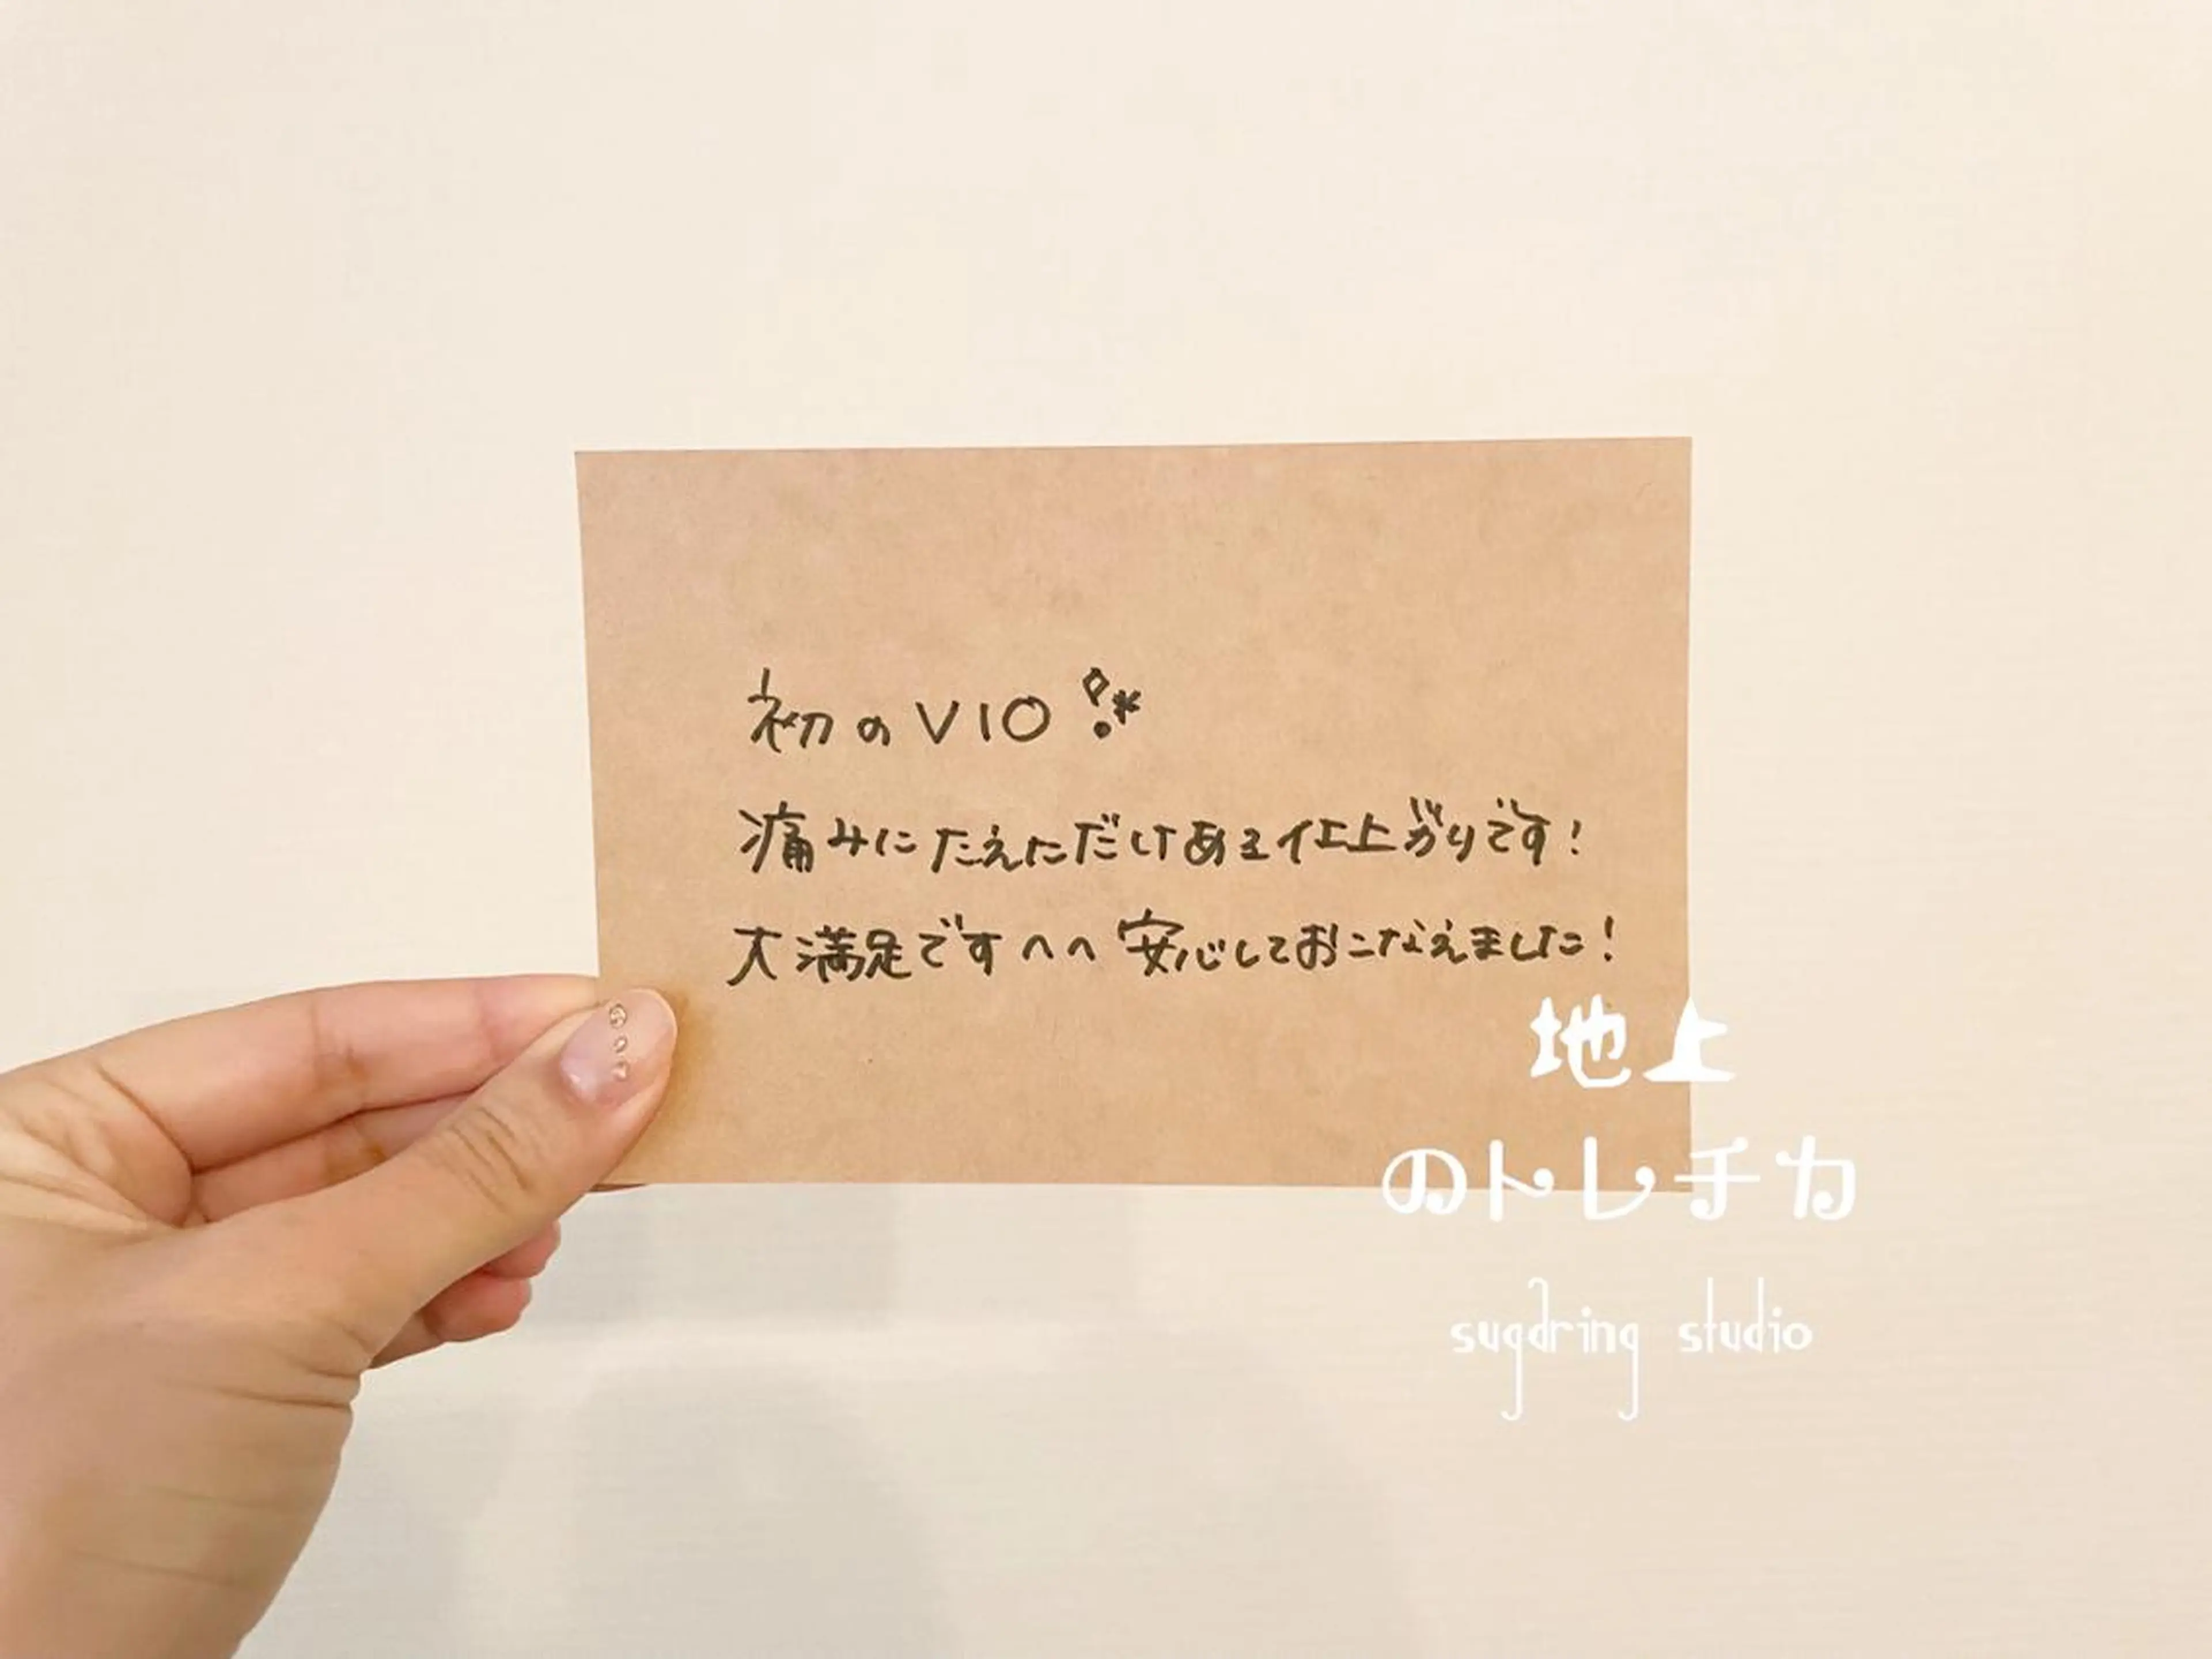 初のVIO
痛みにたえただけある仕上がりです！
大満足です^^ 安心しておこなえました！
地上
のトレチカ
sugaring studio